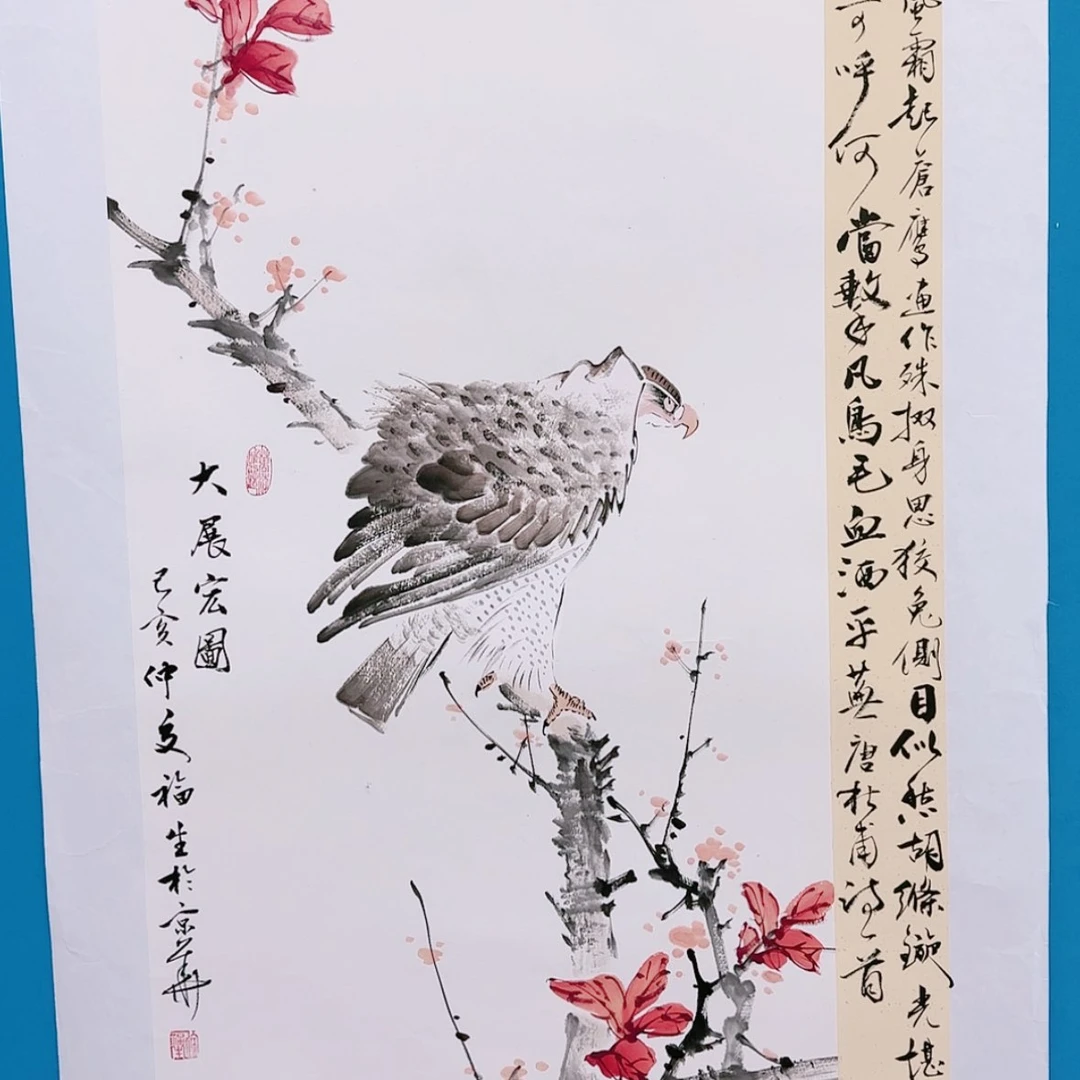 風霜起蒼鷹画作殊掇身思狡兔側目似愁胡絛鏇光堪
可呼何當擊凡鳥毛血洒平蕪唐杜甫诗一首
大展宏圖
己亥仲夏福生於京華